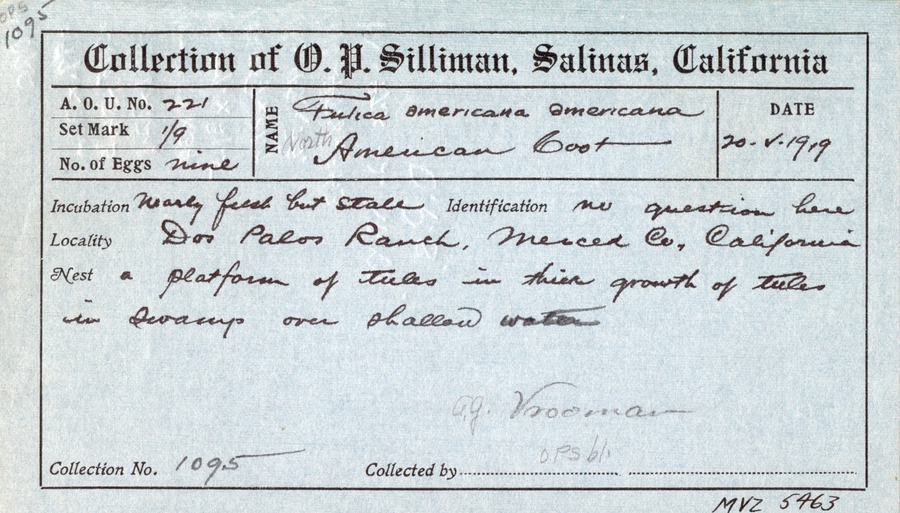 OPS
1095
Collection of O. P. Silliman, Salinas, California
A. O. U. No. 221
Set Mark 1/9
No. of Eggs nine
NAME
Fulica americana americana
North American Coot
DATE
20-V-1919
Incubation Nearly fresh but stale Identification no question here
Locality Dos Palos Ranch, Merced Co., California
Nest a platform of tules in thick growth of tules
in swamp over shallow water
A.G. Vrooman
Collection No. 1095 Collected by OPS
MVZ 5463